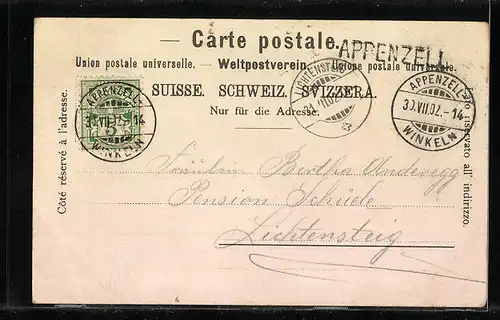 — Carte postale. —
APPENZELL
Union postale universelle. — Weltpostverein. — Unione postale universale.
SUISSE. SCHWEIZ. SVIZZERA.
Nur für die Adresse.
Côté réservé à l'adresse.
Lato riservato all' indirizzo.
APPENZELL
30.VII.02.-14
WINKELN
5
LICHTENSTEIG
VII.02
APPENZELL
30.VII.02.-14
WINKELN
Fräulein Bertha Anderegg
Pension Schüele
Lichtensteig